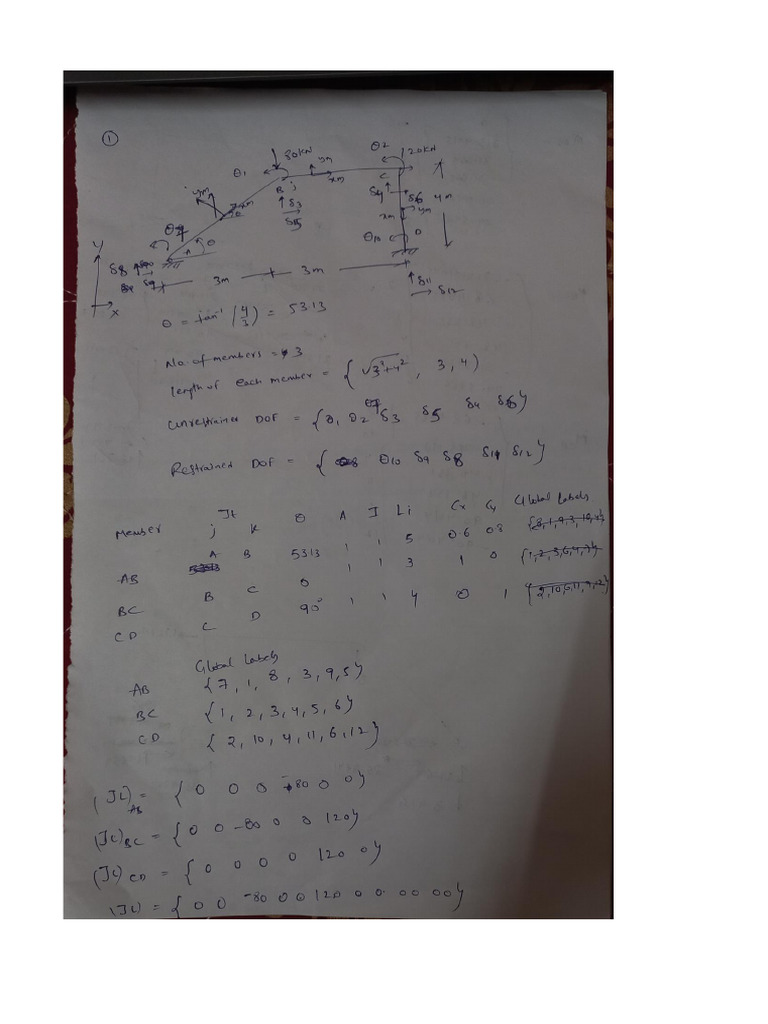 ①
80kN
ym
xm
θ2
120kN
θ1
B
j
C
ym
xm
δ3
δ5
δ4
δ6
4m
xm
ym
θ
θ10
D
Y
δ8
δ9
A
θ
3m
3m
δ11
δ12
X
θ = tan⁻¹ (4/3) = 53.13
No. of members = 3
length of each member = { √3²+4² , 3, 4 )
Unrestrained DOF = { θ1 θ2 θ7 δ3 δ5 δ4 δ6 }
Restrained DOF = { θ10 δ9 δ8 δ11 δ12 }
Member Jt θ A I Li Cx Cy Global Labels
j K
AB A B 53.13 1 1 5 0.6 0.8
BC B C 0 1 1 3 1 0
CD C D 90° 1 1 4 0 1
Global Labels
AB {7, 1, 8, 3, 9, 5}
BC {1, 2, 3, 4, 5, 6}
CD {2, 10, 4, 11, 6, 12}
(JL)AB = { 0 0 0 -80 0 0}
(JL)BC = { 0 0 -80 0 0 120}
(JL)CD = { 0 0 0 0 120 0}
(JL) = { 0 0 -80 0 0 120 0 0 0 0 0 0}